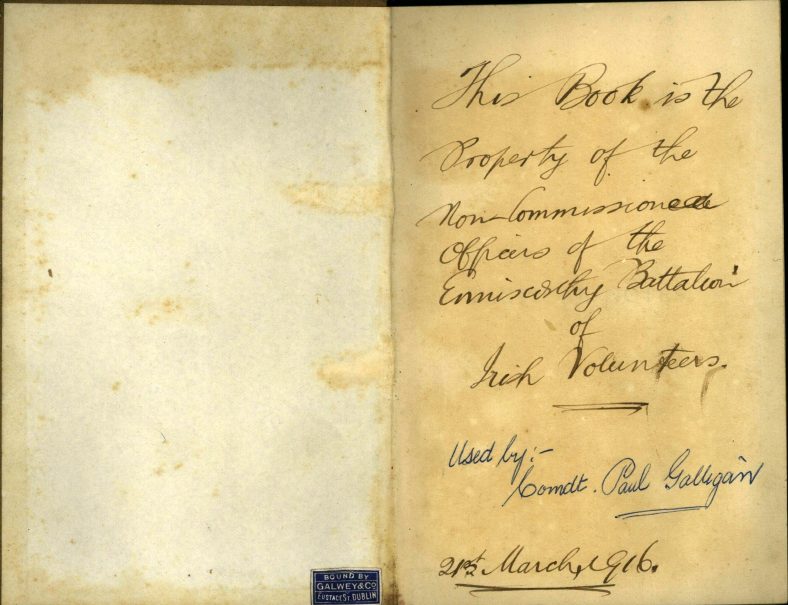 BOUND BY
GALWEY & CO
EUSTACE ST DUBLIN
This Book is the
Property of the
Non-Commissioned
Officers of the
Enniscorthy Battalion
of
Irish Volunteers.
Used by:-
Comdt. Paul Galligan
21st March, 1916.